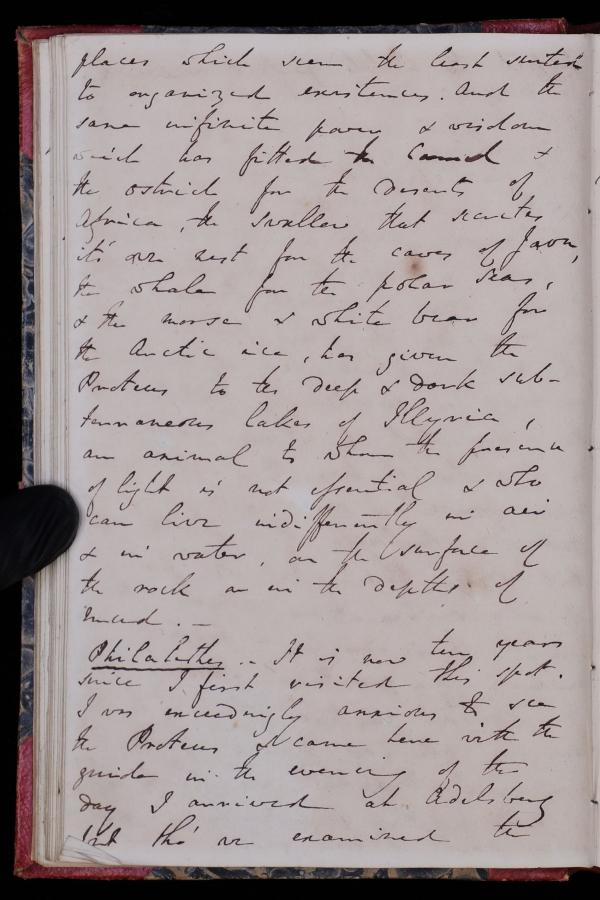 places which seem the least suited
to organized existences. And the
same infinite power & wisdom
which has fitted the Camel &
the ostrich for the deserts of
Africa, the swallow that secretes
its' own nest for the caves of Java,
the whale for the polar seas,
& the morse & white bear for
the Arctic ice, has given the
Proteus to the deep & dark sub-
terraneous lakes of Illyria,
an animal to whom the presence
of light is not essential & who
can live indifferently in air
& in water, on the surface of
the rock or in the depths of
mud. —
Philalethes .. It is now ten years
since I first visited this spot.
I was exceedingly anxious to see
the Proteus & came here with the
guide in the evening of the
day I arrived at Adelsberg
but tho' we examined the